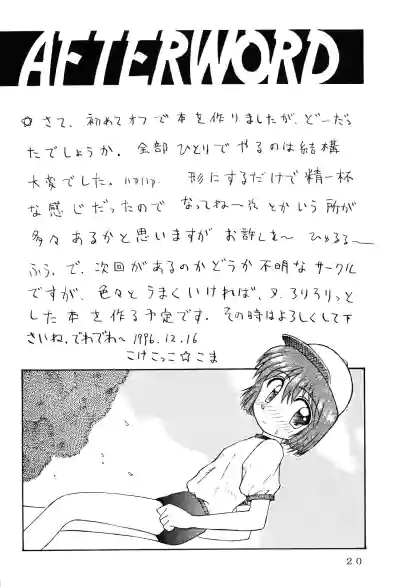 AFTERWORD
☆さて、初めてオフで本を作りましたが、どーだっ
たでしょうか。全部ひとりでやるのは結構
大変でした。ハァハァ 形にするだけで精一杯
な感じだったので なってねーぞ とかいう所が
多々あるかと思いますが お許しを〜 ひゅるる〜
ふぅ、で、次回があるのかどうか不明なサークル
ですが、色々とうまくいければ、又、ろりろりっと
した本を作る予定です。その時はよろしくして下
さいね。でわでわ〜 1996.12.16
こけこっこ☆こま
20